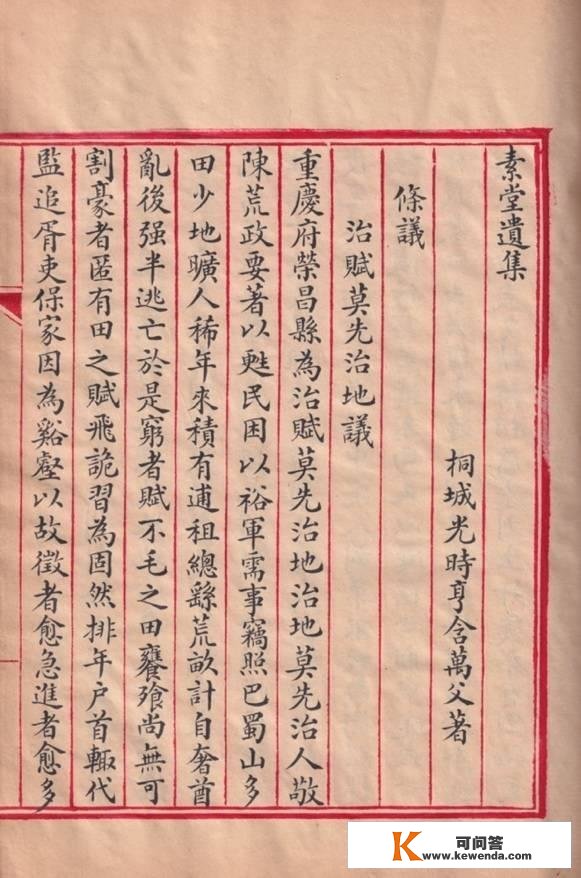 素堂遺集
桐城光時亨含萬父著
條議
治賦莫先治地議
重慶府榮昌縣為治賦莫先治地治地莫先治人敬
陳荒政要著以甦民困以裕軍需事竊照巴蜀山多
田少地曠人稀年來積有逋租總繇荒畝計自奢酋
亂後强半逃亡於是窮者賦不毛之田饔飱尚無可
割豪者匿有田之賦飛詭習為固然排年户首輙代
監追胥吏保家因為谿壑以故徵者愈急進者愈多
K 可问答
www.kewenda.com